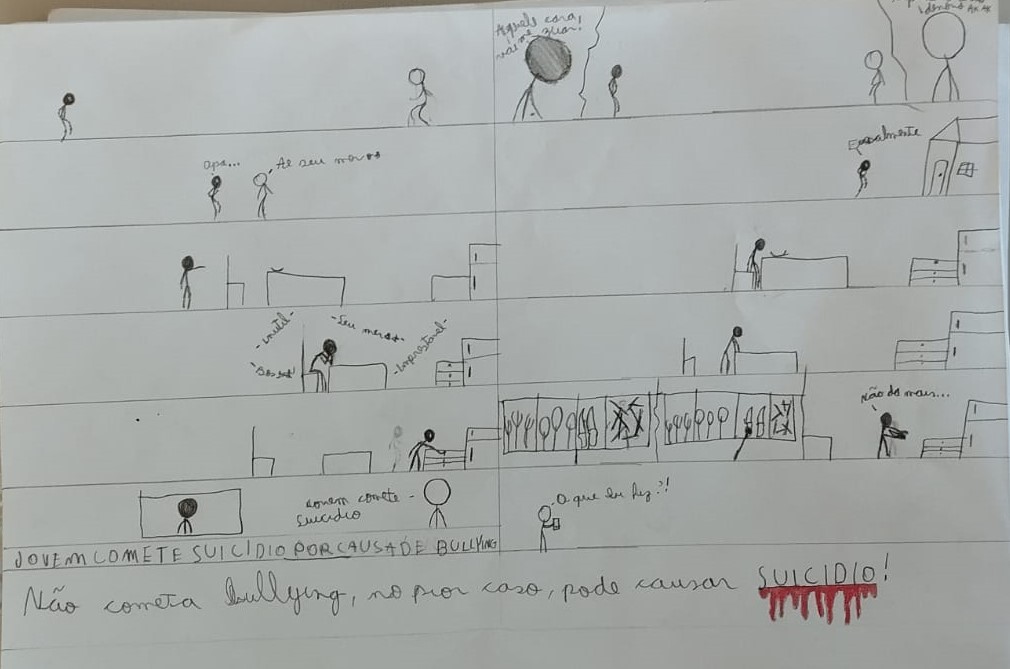 Aquele cara
vai me zuar!
Opa...
Ae seu
Igualmente
-inútil-
-Seu
-Imprestável-
Não dá mais...
Jovem comete -
suicídio
O que eu fiz?!
JOVEM COMETE SUICÍDIO POR CAUSA DE BULLYING
Não cometa bullying, no pior caso, pode causar SUICIDIO!